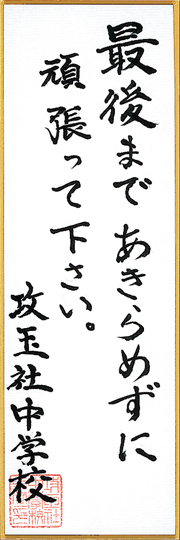 最後まであきらめずに
頑張って下さい。
攻玉社中学校